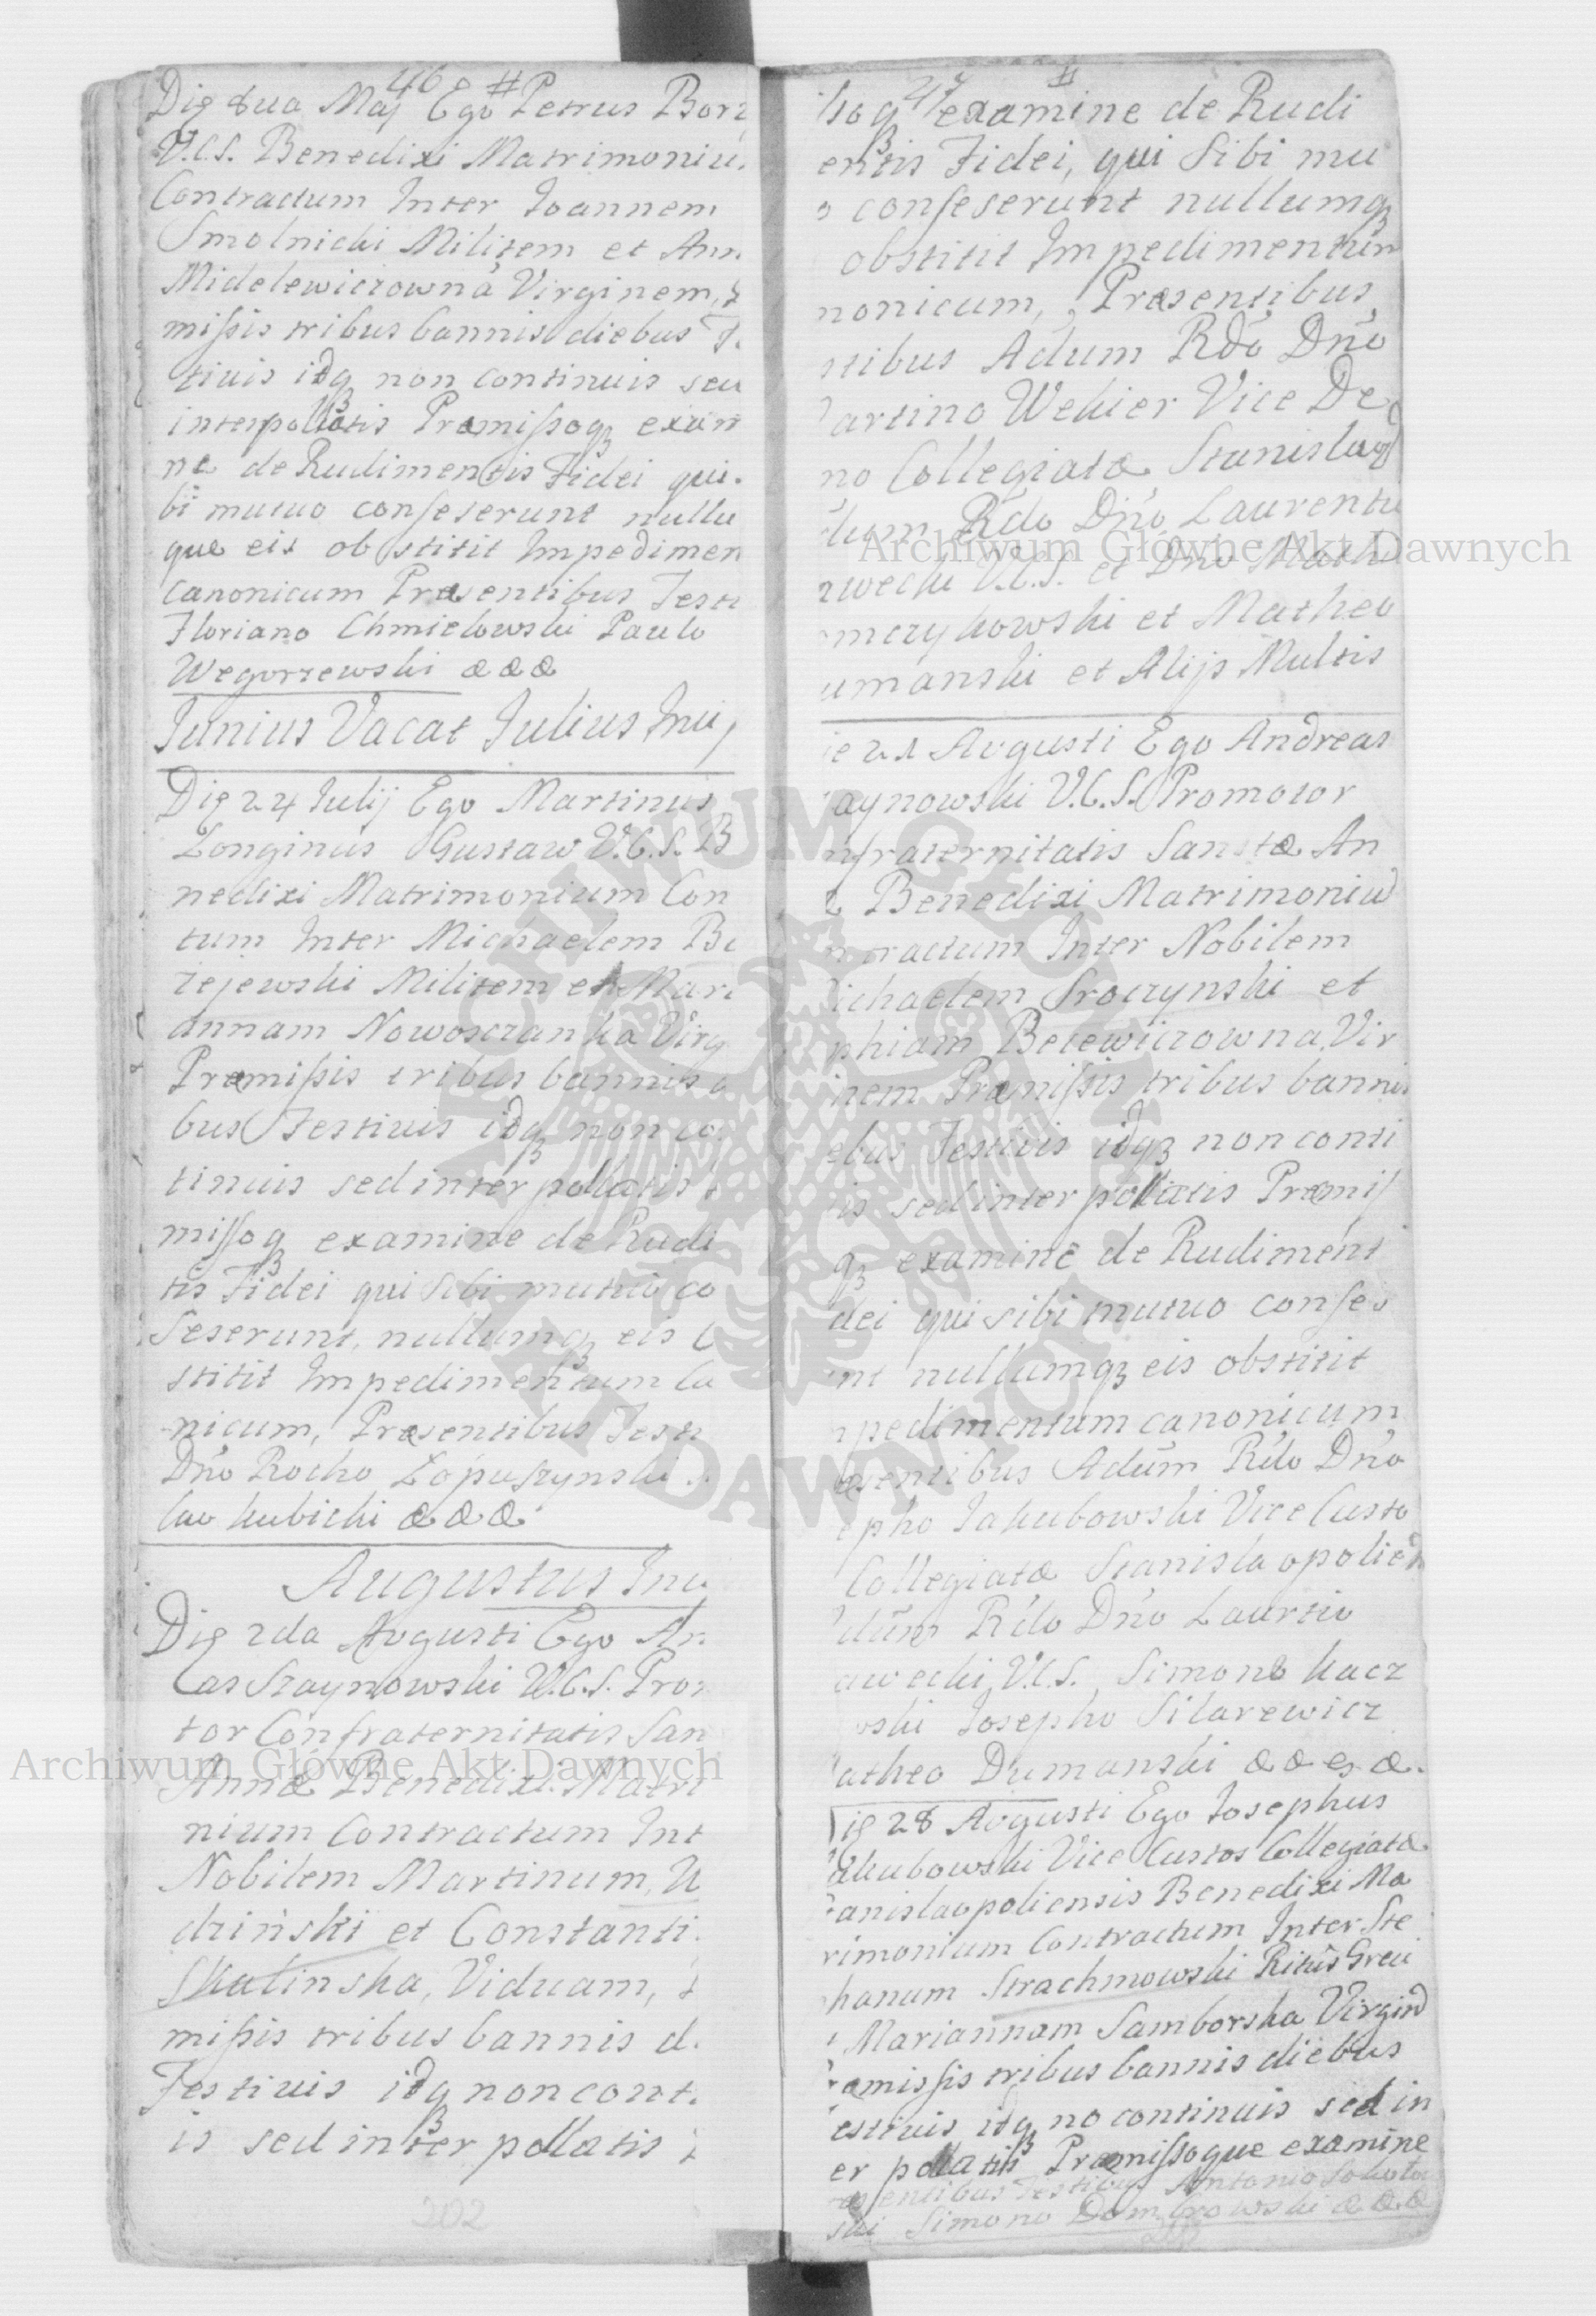 46 #
Die 8va Maj Ego Petrus Borz
V.C.S. Benedixi Matrimoniu.
Contractum Inter Joannem
Smolnicki Militem et Ann
Midelewiczowna Virginem,
missis tribus bannis diebus
tiuis idq3 non continuis seu
interpollatis Præmissoq3 exam
ne de Rudimentis Fidei qui
bi mutuo conseserunt nullu
que eis obstitit Impedimen
canonicum Præsentibus Testi
Floriano Chmielowski Paulo
Wegorzewski æææ
Junius Vacat Julius Inci
Die 24 Julij Ego Martinus
Longinus Gustaw V.C.S. B
nedixi Matrimonium Con
tum Inter Michaelem
zejewski Militem et Mari
annam Nowosczanka Virg
Præmissis tribus bannis
bus Festiuis idq3 non co
tinuis sed interpollatis
missoq3 examine de Rudi
tis Fidei qui sibi mutuo co
seserunt, nullumq3 eis
stitit Impedimentum Ca
nicum, Præsentibus Testi
Dno Rocho Łopuszynski
lao kubicki æææ
Augustus Inci
Die 2da Augusti Ego An
eas Szaynowski V.C.S. Pro
tor Confraternitatis San
Annæ Benedixi Matri
nium Contractum Int
Nobilem Martinum, U
dzinski et Constanti
Skalinska, Viduam,
missis tribus bannis d
Festiuis idq3 non cont
is sed interpollatis
202
47 #
ssoq3 examine de Rudi
entis Fidei, qui sibi mu
o conseserunt nullumq3
obstitit Impedimentum
nonicum, Præsentibus
stibus Adum Rdo Dno
artino Wekier Vice De
no Collegiatæ Stanislao
dum Rdo Dno Laurentii
awecki V.C.S. et Dno Math
omczykowski et Matheo
umanski et Alijs Multis
ie 21 Augusti Ego Andreas
zaynowski V.C.S. Promotor
nfraternitatis Sanctæ An
æ Benedixi Matrimoniu
ntractum Inter Nobilem
ichaelem Sroczynski et
phiam Becewiczowna, Vir
inem Præmissis tribus bannis
ebus Festiuis idq3 non conti
is sed interpollatis Præmiss
q3 examine de Rudiment
dei qui sibi mutuo conse
nt nullumq3 eis obstitit
mpedimentum canonicum
æsentibus Adum Rdo Dno
epho Jakubowski Vice Custo
Collegiatæ Stanislaopolien
dum Rdo Dno Laurtio
awecki V.C.S. Simone kacz
wski Josepho Silarewicz
atheo Dumanski
ie 28 Augusti Ego Josephus
akubowski Vice Custos Collegiatæ
tanislaopoliensis Benedixi Ma
rimonium Contractum Inter Ste
hanum Strachmowski Ritus Greci
Mariannam Samborska Virgin
æmissis tribus bannis diebus
estiuis idq3 no continuis sed in
er pollatis Præmissoque examine
æsentibus Testibus Antonio
ski Simono Dombrowski æææ
Archiwum Główne Akt Dawnych
Archiwum Główne Akt Dawnych
ARCHIWUM GŁÓWNE
AKT DAWNYCH